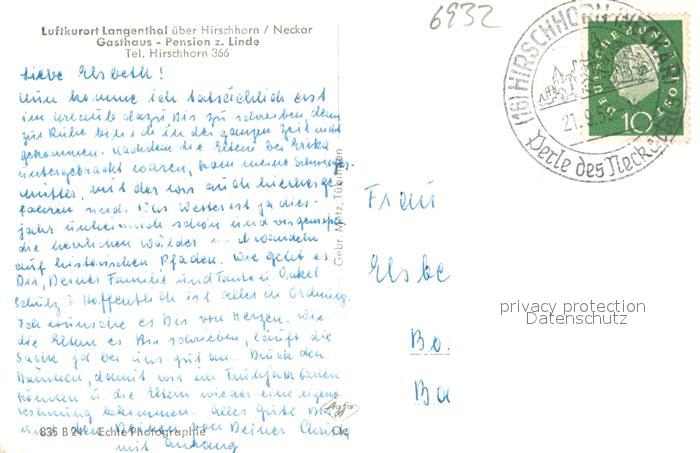 6932
Luftkurort Langenthal über Hirschhorn / Neckar
Gasthaus - Pension z. Linde
Tel. Hirschhorn 366
Liebe Elsbeth!
Nun komme ich tatsächlich erst
im Urlaub dazu Dir zu schreiben, denn
zur Ruhe bin ich in der ganzen Zeit nicht
gekommen. Nachdem die Eltern bei Erika
untergebracht waren, kam meine Schwieger-
mutter, mit der wir auch hierher ge-
fahren sind. Das Wetter ist ja dies-
jahr unheimlich schön und wir genießen
die herrlichen Wälder und wandern
auf historischen Pfaden. Wie geht es
Dir, Deiner Familie und Tante u. Onkel
Schütz? Hoffentlich ist alles in Ordnung.
Ich wünsche es Dir von Herzen. Wie
die Eltern es Dir schrieben, läuft die
Sache ja bei uns gut an. Drück den
Daumen, damit wir im Frühjahr bauen
können u. die Eltern wieder eine eigene
Wohnung bekommen. Alles Gute Dir
und den Deinen von Deiner
mit Anhang
835 B 24 Echte Photographie
Agfa
Gebr. Metz, Tübingen
(16) HIRSCHHORN (NECKAR)
21.9.59
Perle des Neckar
DEUTSCHE BUNDESPOST
10
Frau
Elsbe
Bo.
Ba
privacy protection
Datenschutz